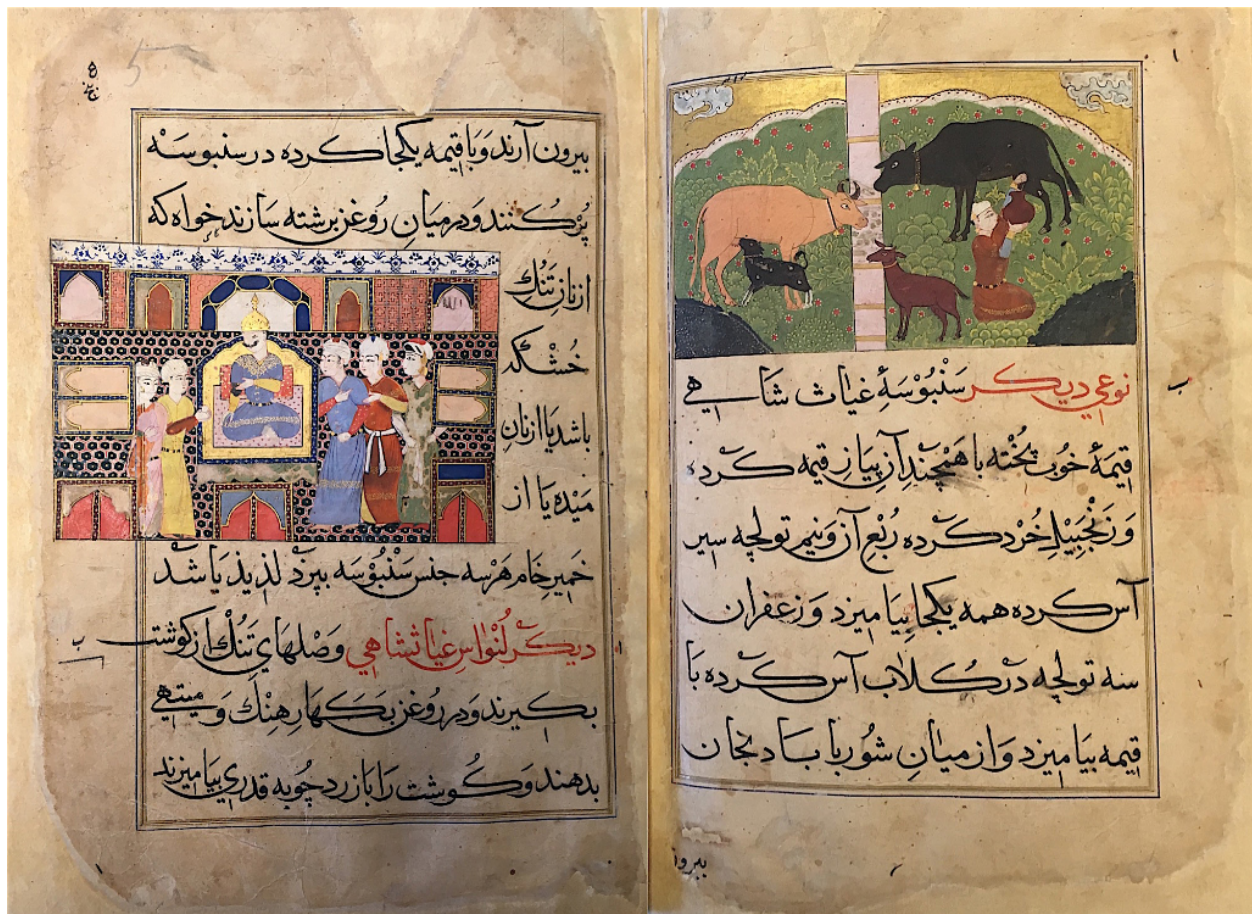 نوعی دیکر سَنْبُوْسَهٔ غیاث شاهی
قیمهٔ خوب پخته با همچندِ آن پیازِ قیمه کرده
وَزنجَبِیْلِ خُرْد کرده رُبْعِ آن وَنیم تولچه سیر
آس کرده همه یکجا بیامیزد وَزعفران
سه تولچه در کلاب آس کرده بَا
قیمه بیامیزد وَاز میانِ شوربا بادنجان
بیرون
بیرون آرند وَبَا قیمه یکجا کرده در سنبوسَه
پُرْ کُنند وَدرمیانِ رُوغن برشته سَازند خواه که
ازنانِ تَنُك
خُشْکه
باشد یا ازنانِ
مَیْده یا از
خمیرِ خام هرسه جنس سَنْبُوْسَه بپزد لذیذ باشد
دیکر لُنْوٰاسِ غیاثشاهی وَصْلهایِ تَنُك از کوشت
بکیرند وَدر رُوغن بَکَهار هِنْك وَمیتهی
بدهند وَکُوشت رَا بَا زردچُوبه قدری بیامیزند
5